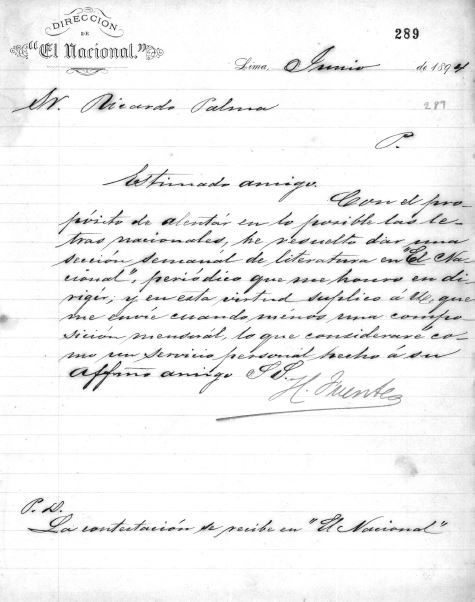 DIRECCION
DE
"El Nacional."
289
Lima, Junio de 1894
287
Sr. Ricardo Palma
P.
Estimado amigo.
Con el pro-
pósito de alentár en lo posible las le-
tras nacionales, he resuelto dar una
sección semanal de literatura en "El Na-
cional", periódico que me honro en di-
rigír, y en esta virtud suplico á U., que
me envíe cuando ménos una compo-
sición mensuál, lo que consideraré co-
mo un servicio personal hecho á su
Affmo amigo S.S.
H. Fuentes
P. D.
La contestación se recibe en "El Nacional"